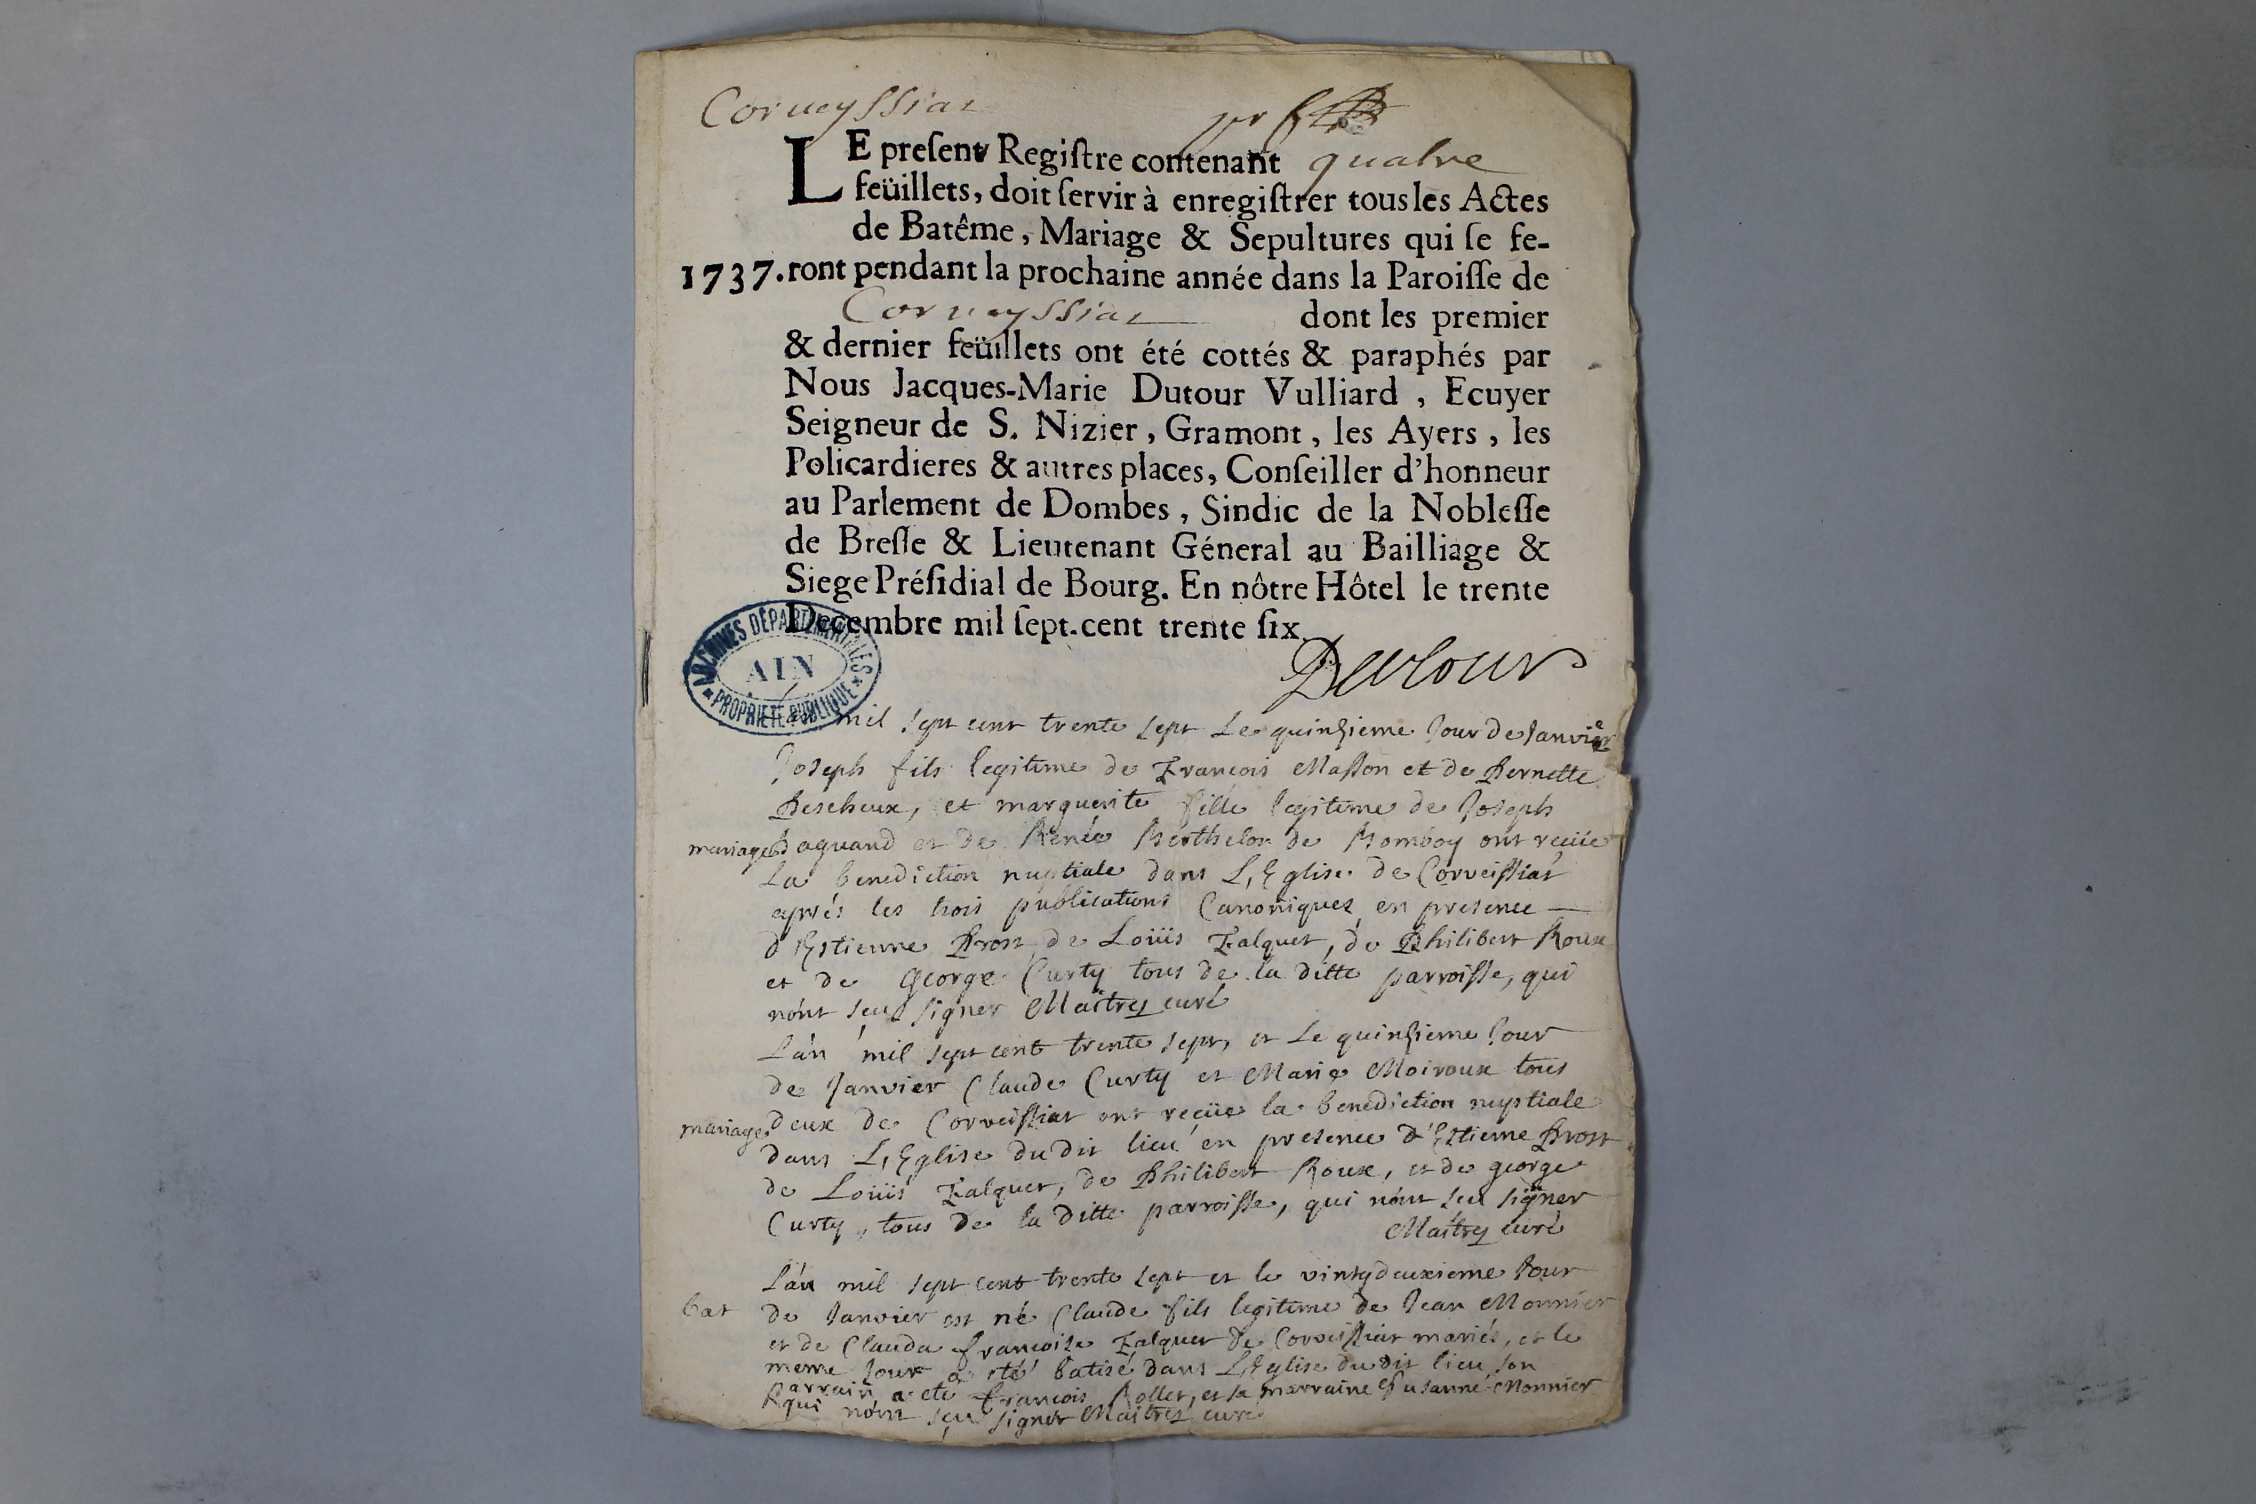 Corueyssiat
LE preſent Regiſtre contenant quatre
feüillets, doit ſervir à enregiſtrer tous les Actes
de Batême, Mariage & Sepultures qui ſe fe-
1737. ront pendant la prochaine année dans la Paroiſſe de
Corueyssiat dont les premier
& dernier feüillets ont été cottés & paraphés par
Nous Jacques-Marie Dutour Vulliard, Ecuyer
Seigneur de S. Nizier, Gramont, les Ayers, les
Policardieres & autres places, Conſeiller d'honneur
au Parlement de Dombes, Sindic de la Nobleſſe
de Breſſe & Lieutenant Géneral au Bailliage &
Siege Préſidial de Bourg. En nôtre Hôtel le trente
Decembre mil ſept-cent trente ſix.
ARCHIVES DÉPARTEMENTALES
AIN
* PROPRIÉTÉ PUBLIQUE *
Dutour
mil sept cent trente sept Le quinzieme Jour de Janvier
Joseph fils legitime de François Masson et de Pernette
et marguerite fille legitime de Joseph
mariage et de Renée Berthelon de ont reçüe
La benediction nuptiale dans L'Eglise de Corveissiat
aprés les trois publications Canoniques en presence
d'Estienne Prost de Loüis Falquet, de Philibert Roux
et de George Curty tous de la ditte parroisse, qui
n'ont sçeu signer Maitrey curé
L'an mil sept cent trente sept, et Le quinzieme Jour
de Janvier Claude Curty et Marie Moiroux tous
mariage deux de Corveissiat ont reçüe la benediction nuptiale
dans L'Eglise du dit lieu en presence d'Estienne Prost
de Loüis Falquet, de Philibert Roux, et de george
Curty, tous de la ditte parroisse, qui n'ont sçeu signer
Maitrey curé
L'an mil sept cent trente sept et le vintydeuxieme Jour
bat de Janvier est né Claude fils legitime de Jean Monnier
et de Clauda françoise Falquet de Corveissiat mariés, et le
meme Jour a eté batisé dans L'Eglise du dit lieu son
parrain a eté François Rollet, et sa marraine Susanne Monnier
qui n'ont sçeu signer Maitrey curé